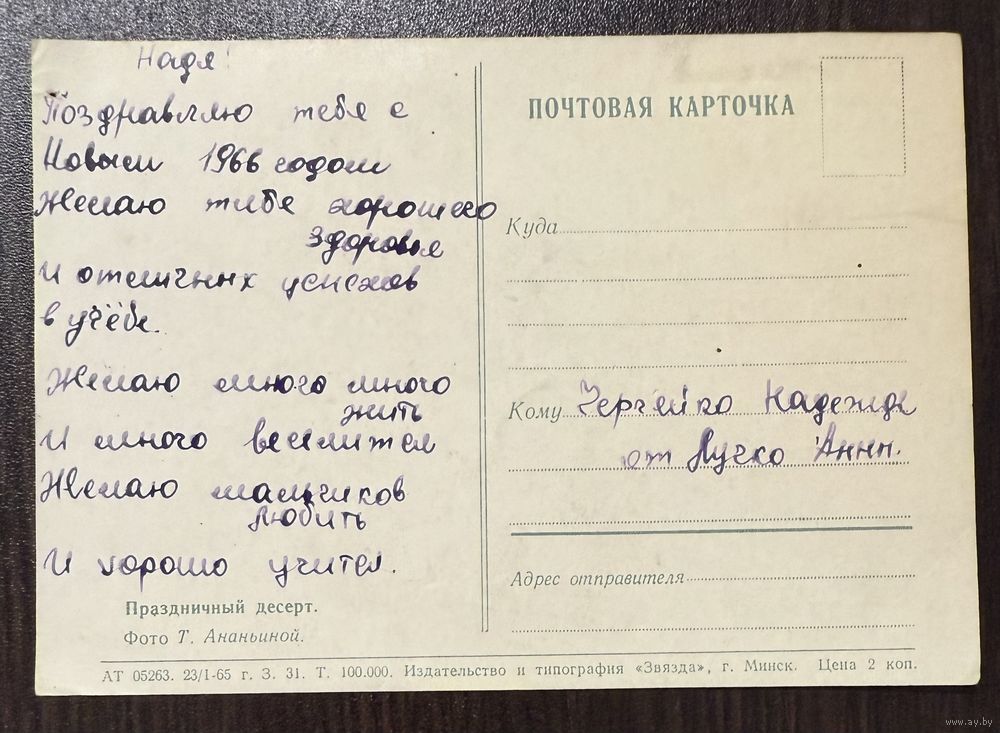 Надя!
Поздравляю тебя с
Новым 1966 годом
Желаю тебе хорошего
здоровья
и отличных успехов
в учёбе.
Желаю много много
жить
И много веселится
Желаю мальчиков
любить
И хорошо учится.
Праздничный десерт.
Фото Т. Ананьиной.
ПОЧТОВАЯ КАРТОЧКА
Куда
Кому Чергейко Надежде
от Лучко Анны.
Адрес отправителя
АТ 05263. 23/1-65 г. З. 31. Т. 100.000. Издательство и типография «Звязда», г. Минск. Цена 2 коп.
www.ay.by